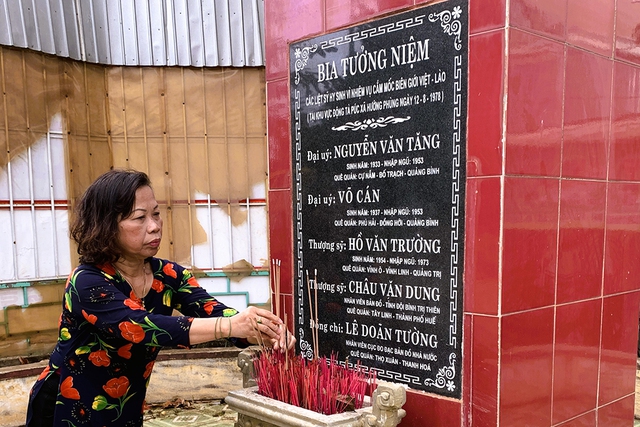 BIA TƯỞNG NIỆM
CÁC LIỆT SỸ HY SINH VÌ NHIỆM VỤ CẮM MỐC BIÊN GIỚI VIỆT - LÀO
( TẠI KHU VỰC ĐỘNG TA PÚC XÃ HƯỚNG PHÙNG NGÀY 12 - 8 - 1978 )
Đại uý: NGUYỄN VĂN TĂNG
SINH NĂM: 1933 - NHẬP NGŨ: 1953
QUÊ QUÁN: CỰ NẪM - BỐ TRẠCH - QUẢNG BÌNH
Đại uý: VÕ CÁN
SINH NĂM: 1937 - NHẬP NGŨ: 1953
QUÊ QUÁN: PHÚ HẢI - ĐỒNG HỚI - QUẢNG BÌNH
Thượng sỹ: HỒ VĂN TRƯỜNG
SINH NĂM: 1954 - NHẬP NGŨ: 1973
QUÊ QUÁN: VĨNH Ô - VĨNH LINH - QUẢNG TRỊ
Thượng sỹ: CHÂU VĂN DUNG
NHÂN VIÊN BẢN ĐỒ - TỈNH ĐỘI BÌNH TRỊ THIÊN
QUÊ QUÁN: TÂY LINH - THÀNH PHỐ HUẾ
Đồng chí: LÊ DOÃN TƯỜNG
NHÂN VIÊN CỤC ĐO ĐẠC BẢN ĐỒ NHÀ NƯỚC
QUÊ QUÁN: THỌ XUÂN - THANH HOÁ